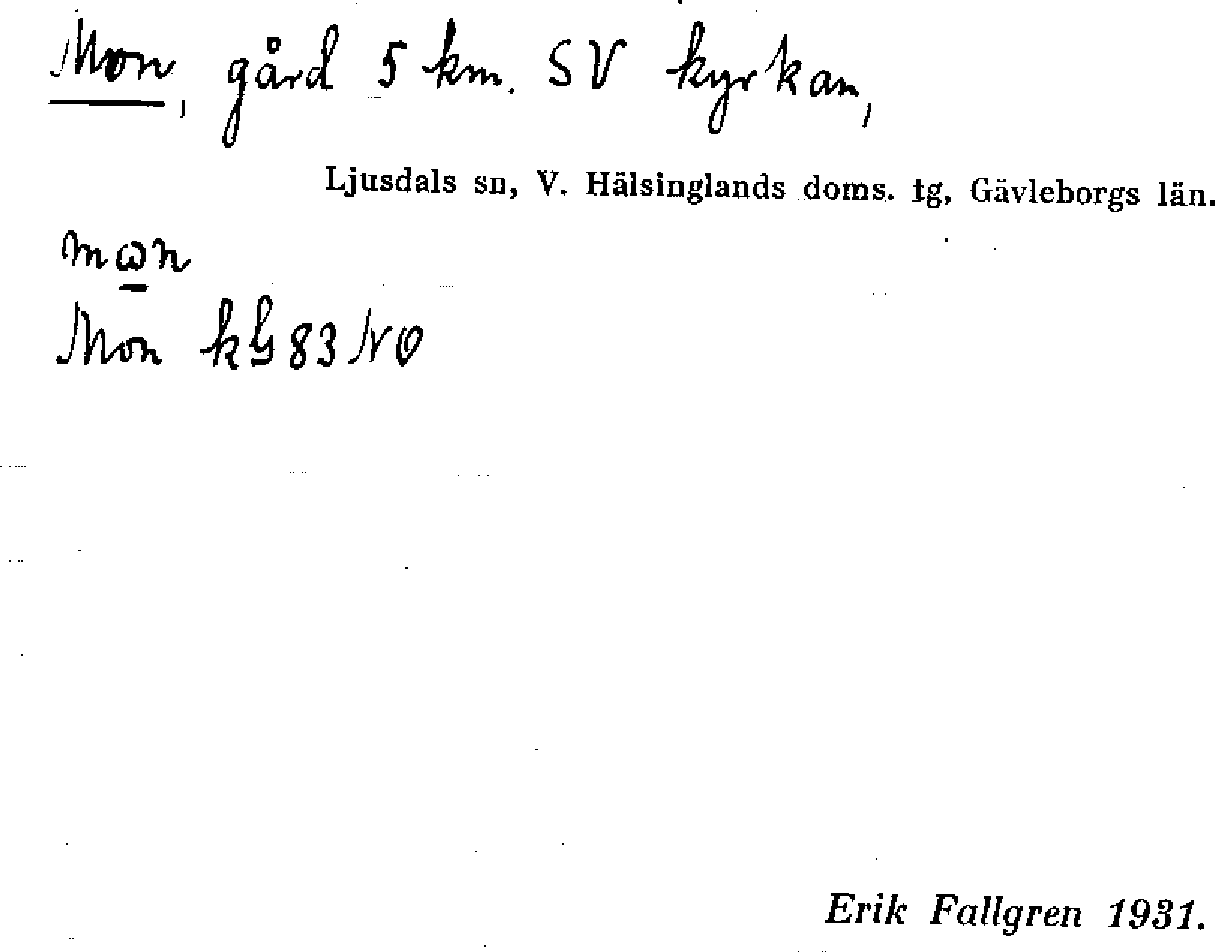 Mon, gård 5 km. SV kyrkan,
Ljusdals sn, V. Hälsinglands doms. tg, Gävleborgs län.
mωn
Mon kG 83 NO
Erik Fallgren 1931.